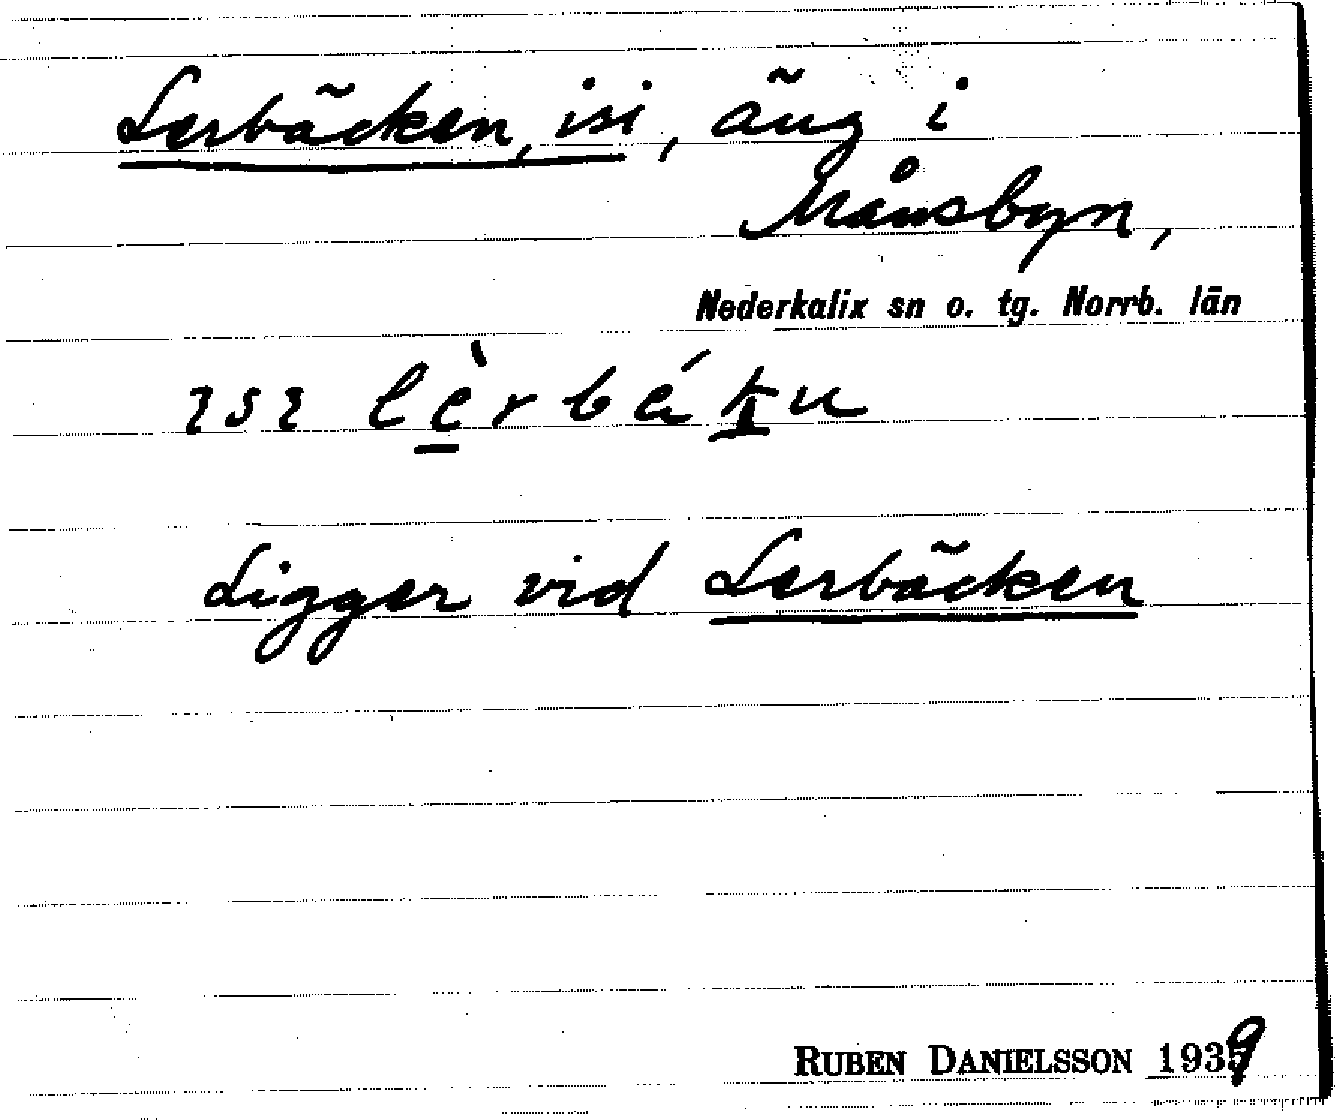 Lerbäcken, isi, äng i
Månsbyn,
Nederkalix sn o. tg. Norrb. län
ɿsɿ lèrbákn
Ligger vid Lerbäcken
RUBEN DANIELSSON 1939